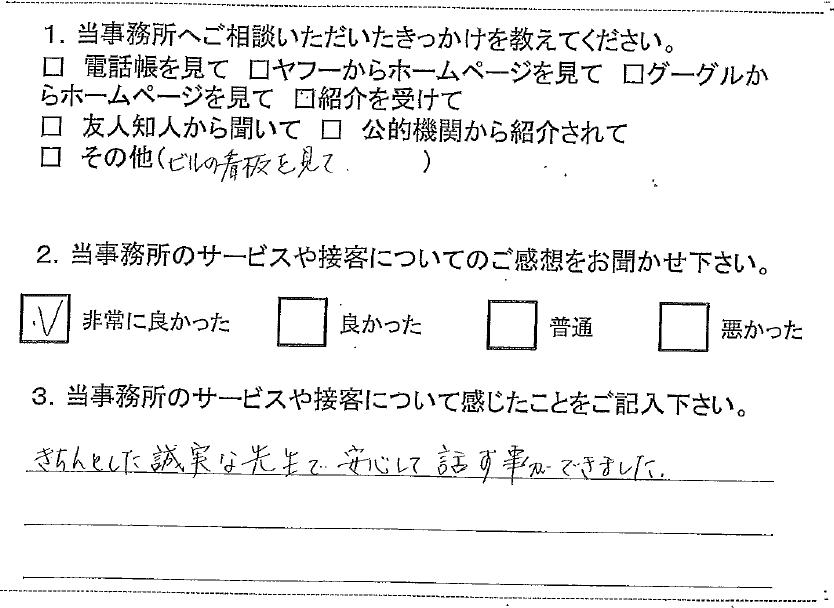 1. 当事務所へご相談いただいたきっかけを教えてください。
□ 電話帳を見て □ヤフーからホームページを見て □グーグルか
らホームページを見て □紹介を受けて
□ 友人知人から聞いて □ 公的機関から紹介されて
□ その他(ビルの看板を見て )
2. 当事務所のサービスや接客についてのご感想をお聞かせ下さい。
☑ 非常に良かった □ 良かった □ 普通 □ 悪かった
3. 当事務所のサービスや接客について感じたことをご記入下さい。
きちんとした誠実な先生で安心して話す事ができました。